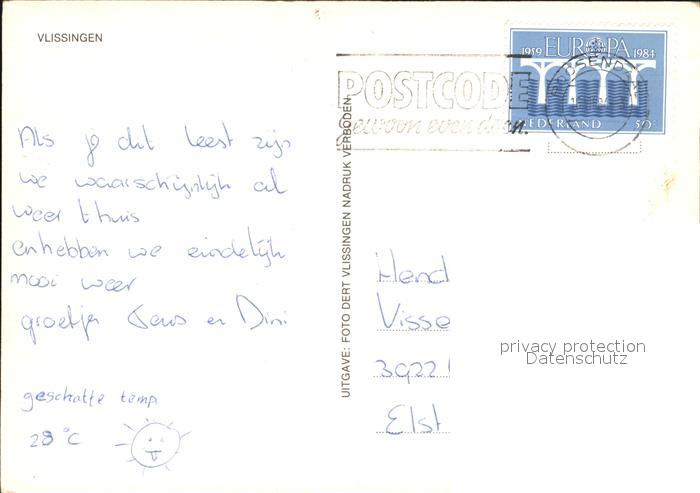 VLISSINGEN
1959 EUROPA 1984
NEDERLAND 50c
POSTCODE
gewoon even doen.
Als je dit leest zijn
we waarschijnlijk al
weer thuis
en hebben we eindelijk
mooi weer
groetjes en Dini
geschatte temp
28 °C
UITGAVE: FOTO DERT VLISSINGEN NADRUK VERBODEN
Hend
Visse
3922 
Elst
privacy protection
Datenschutz